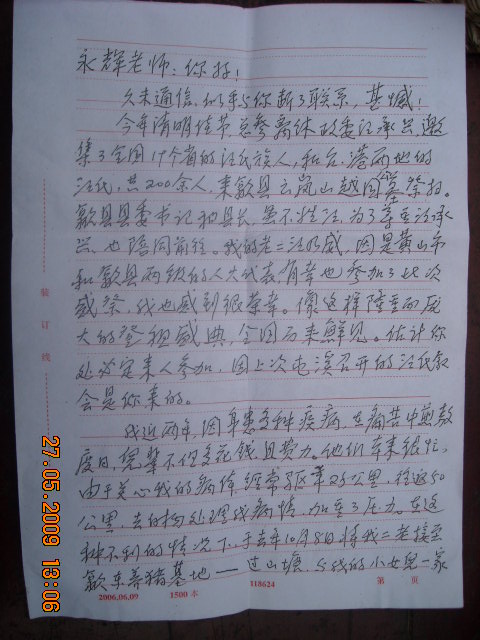 永辉老师：你好！
久未通信，似乎与你断了联系，甚憾！
今年清明佳节总参离休政委汪承兴，邀
集了全国17个省的汪氏族人，和台、港两地的
汪氏，共200余人，来歙县云岚山越国公墓祭扫。
歙县县委书记和县长，虽不姓汪，为了尊重汪承
兴，也陪同前往。我的老二汪乃威，因是黄山市
和歙县两级的人大代表，有幸也参加了此次
盛祭，我也感到很荣幸。像这样隆重的庞
大的祭祖盛典，全国历来鲜见。估计你
处必定来人参加，因上次屯溪召开的汪氏叙
会是你来的。
我近两年，因身患多种疾病，在痛苦中煎熬
度日，儿辈不但支花钱且费力。他们本来很忙，
由于关心我的病体，经常驱车25公里，往返50
公里，去的均处理我病情，加重了压力。在这
种不利的情况下，于去年10月8日将我二老接至
歙东养猪基地——过山塘，与我的小女儿一家
装订线
2006.06.09 1500本 118624 第 页
27.05.2009 13:06